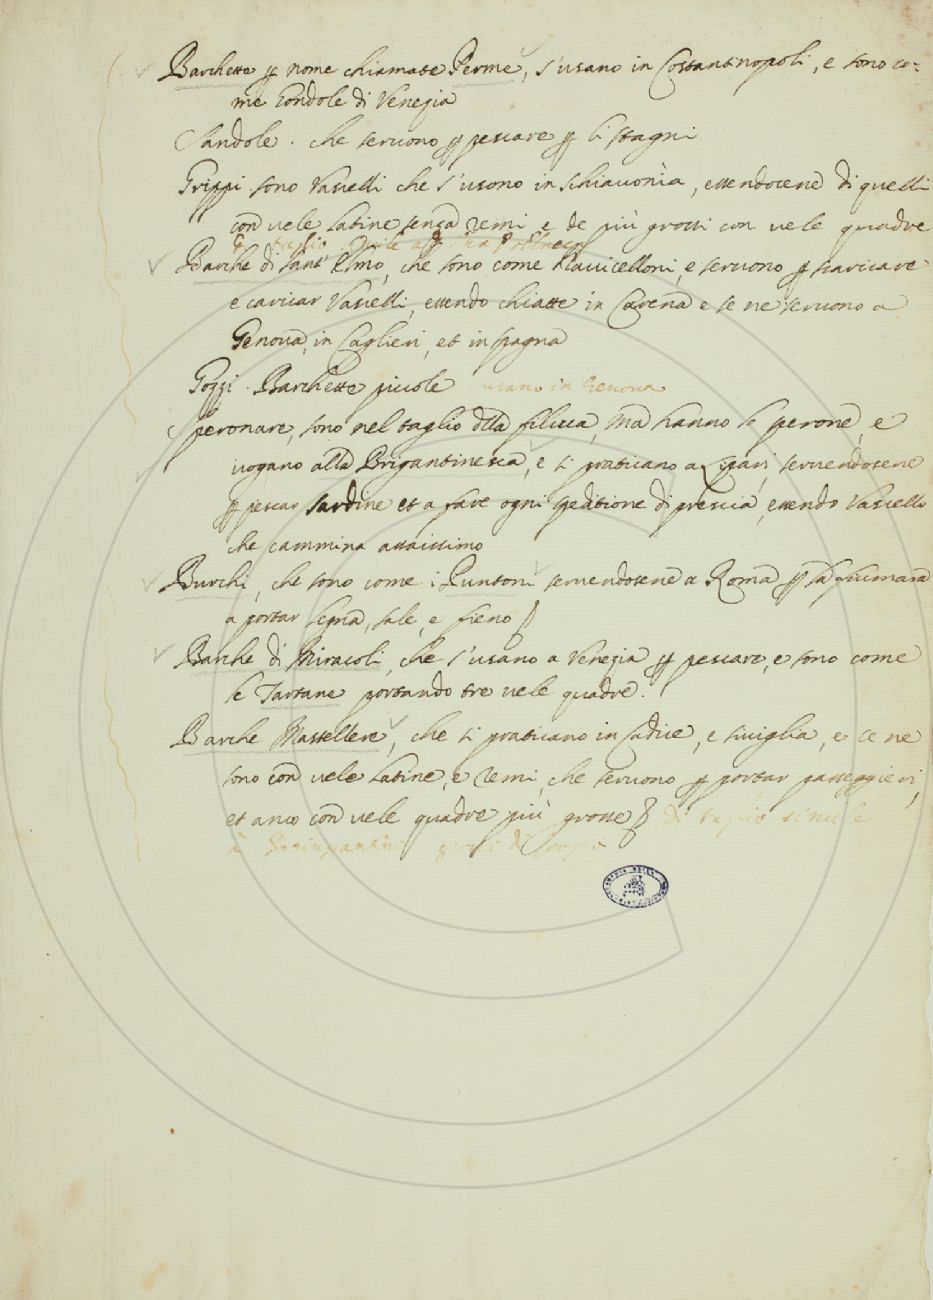 Barchette p nome chiamate Perme, s'usano in Costantinopoli, e sono co=
me Gondole di Venezia
Sandole. che seruono p pescare p li stagni
Grippi sono Vascelli che s'usono in schiauonia, essendosene di quelli
con uele latine senza remi e de più grossi con uele quadre
Barche di sant'Elmo, che sono come Nauicelloni, e seruono p scaricare
e caricar Vascelli, essendo chiatte in Carena e se ne seruono a
Genoua, in Caglieri, et in spagna
Gozzi. Barchette picciole usano in Genoua
Speronare, sono nel taglio della filucca, ma hanno lo sperone, e
uogano alla Brigantinesca, e si praticano a Lipari, seruendosene
p pescar sardine et a fare ogni speditione di prescia, essendo Vascello
che cammina assaissimo
Burchi, che sono come i Puntoni seruendosene a Roma p la fiumara
a portar legna, sale, e fieno
Barche di Miracoli, che s'usano a Venezia p pescare, e sono come
le Tartane portando tre uele quadre.
Barche Mastellere, che si praticano in Cadice, e Siuiglia, e ce ne
sono con uele latine, e remi, che seruono p portar passeggieri,
et anco con uele quadre più grosse di taglio simile
a